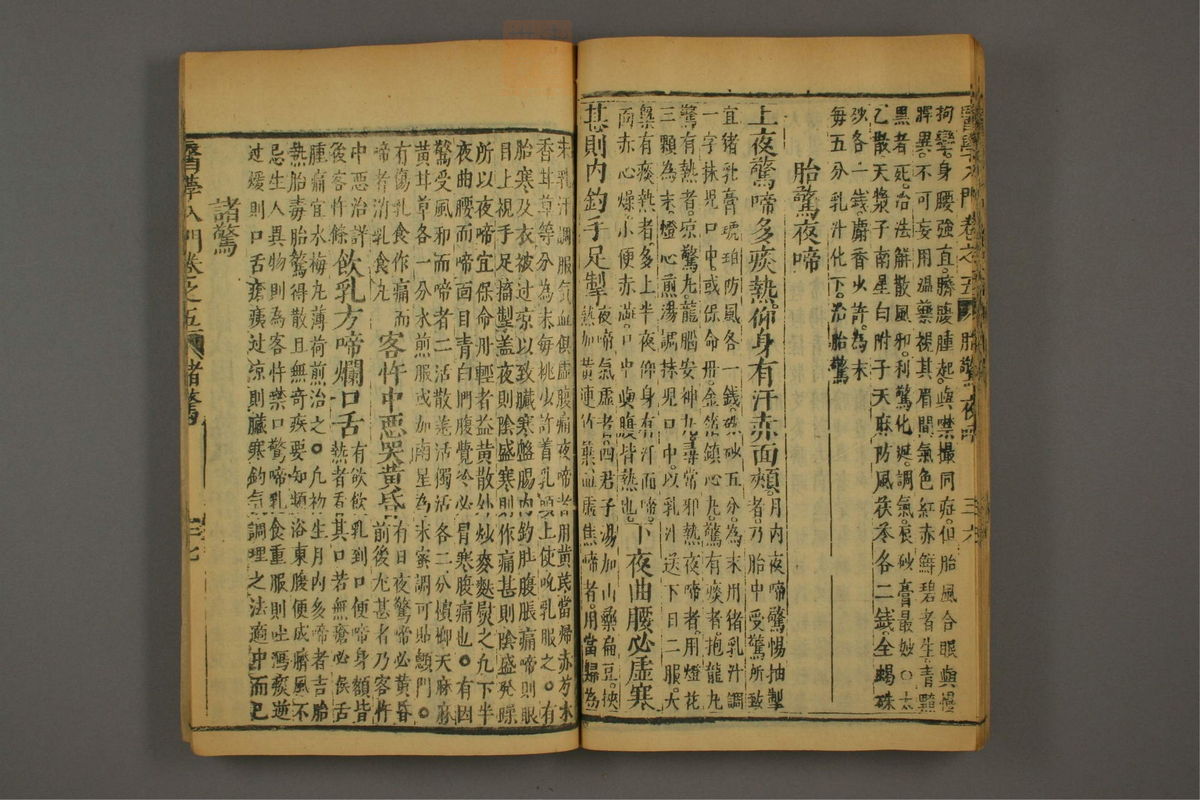 醫學入門卷之五 胎驚夜啼 三六
拘攣。身腰強直。臍腹腫起。與噤撮同症。但胎風合眼與慢
脾異。不可妄用溫藥。視其眉間氣色紅赤鮮碧者生。青黯
黑者死。治法解散風邪。利驚化痰。調氣。辰砂膏最妙。○太
乙散。天漿子南星白附子天麻防風茯苓各二錢。全蝎硃
砂各一錢。麝香少許。為末
每五分乳汁化下。治胎驚
胎驚夜啼
上夜驚啼多痰熱。仰身有汗赤面頰。
月內夜啼驚惕抽掣
者。乃胎中受驚所致
宜猪乳膏。琥珀防風各一錢。硃砂五分。為末。用猪乳汁調
一字抹兒口中。或保命丹。金箔鎮心丸。驚有痰者。抱龍丸
驚有熱者。凉驚丸。龍腦安神丸。尋常邪熱夜啼者。用燈花
三顆為末。燈心煎湯調抹兒口中。以乳汁送下。日二服。大
槩有痰熱者。多上半夜仰身有汗而啼。
面赤心燥。小便赤澁。口中與腹皆熱也。
下夜曲腰必虛寒
甚則內釣手足掣
夜啼氣虛者。四君子湯加山藥扁豆。挾
熱加黃連竹葉。血虛焦啼者。用當歸為
末乳汁調服。氣血俱虛腹痛夜啼者。用黄芪當歸赤芍木
香甘草等分為末。每挑少許着乳頭上。使吮乳服之。○有
胎寒及衣被過凉。以致臟寒盤腸內釣肚腹脹痛。啼則眼
目上視。手足搐掣。盖夜則陰盛。寒則作痛。甚則陰盛發躁
所以夜啼。宜保命丹。輕者益黃散。外炒麥麩熨之。○凡下半
夜曲腰而啼。面目青白。捫腹覺冷。必胃寒腹痛也。○有因
驚受風邪而啼者。二活散。羗活獨活各二分檳榔天麻麻
黃甘草各一分水煎服。或加南星為末。蜜調可貼顖門。○
有傷乳食作痛而
啼者消乳食丸
客忤中惡哭黃昏
有日夜驚啼。必黃昏
前後尤甚者。乃客忤
中惡。治詳
後客忤條
飲乳方啼爛口舌
有欲飲乳到口便啼。身額皆
熱者。看其口若無瘡。必喉舌
腫痛。宜水梅丸。薄荷煎治之。○凡初生月內多啼者吉。胎
熱胎毒胎驚得散且無奇疾。要知頻浴東腹便成臍風。不
忌生人異物則為客忤。禁口驚啼。乳食重服則吐瀉痰逆
過煖則口舌瘡痍。過凉則臟寒釣氣。調理之法適中而已
諸驚
醫學入門卷之五 諸驚 三七